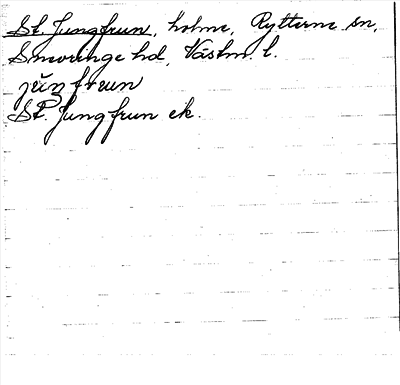 St. Jungfrun, holme, Rytterne sn,
Snevringe hd, Västm. l.
jŭŋfrun
St. Jungfrun ek.